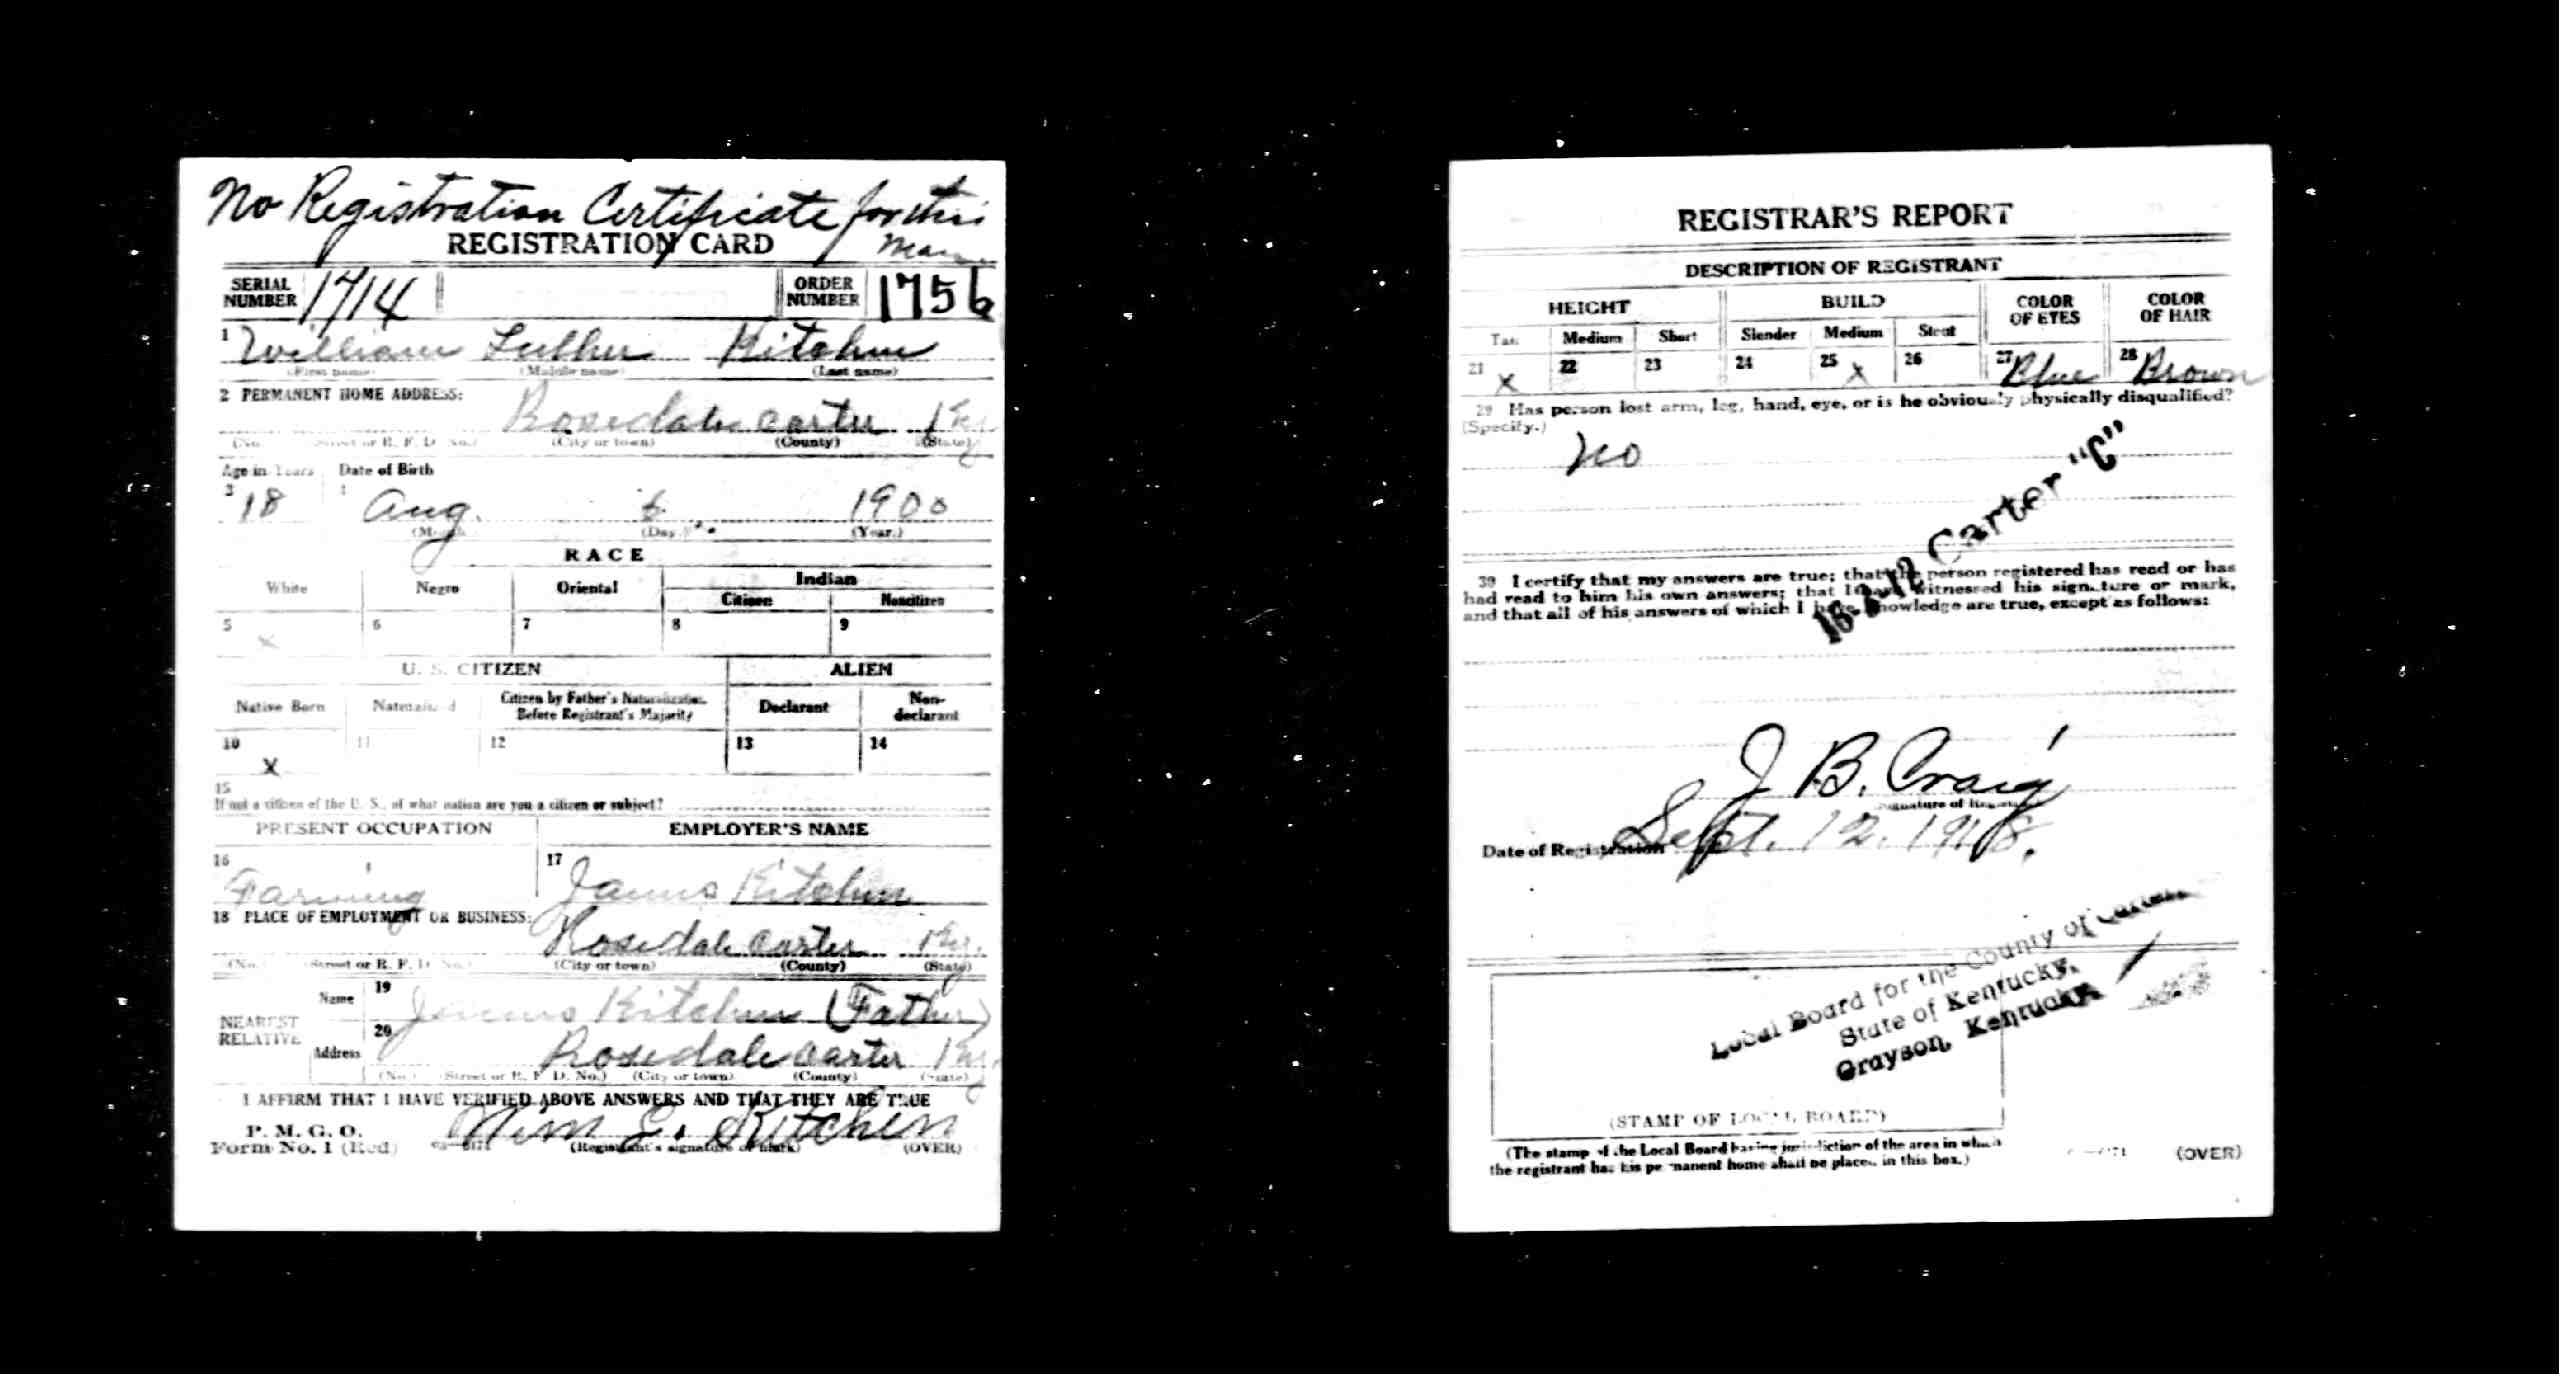 No Registration Certificate for this
Man
REGISTRATION CARD
SERIAL NUMBER 1714 ORDER NUMBER 1756
1 William Luther Kitchen
(First name) (Middle name) (Last name)
2 PERMANENT HOME ADDRESS:
Rosedale Carter Ky
(No.) (Street or R. F. D. No.) (City or town) (County) (State)
Age in Years Date of Birth
3 18 Aug. 6 1900
(Day.) (Year.)
RACE
White Negro Oriental Indian
Citizen Noncitizen
5 x 6 7 8 9
U. S. CITIZEN ALIEN
Native Born Naturalized Citizen by Father's Naturalization Before Registrant's Majority Declarant Non-declarant
10 x 11 12 13 14
15
If not a citizen of the U. S., of what nation are you a citizen or subject?
PRESENT OCCUPATION EMPLOYER'S NAME
16 Farming 17 James Kitchen
18 PLACE OF EMPLOYMENT OR BUSINESS:
Rosedale Carter Ky.
(No.) (Street or R. F. D. No.) (City or town) (County) (State)
NEAREST RELATIVE Name 19 James Kitchen (Father)
Address 20 Rosedale Carter Ky.
(No.) (Street or R. F. D. No.) (City or town) (County) (State)
I AFFIRM THAT I HAVE VERIFIED ABOVE ANSWERS AND THAT THEY ARE TRUE
P. M. G. O.
Form No. 1 (Red) Wm L. Kitchen
(Registrant's signature or mark) (OVER)
REGISTRAR'S REPORT
DESCRIPTION OF REGISTRANT
HEIGHT BUILD COLOR OF EYES COLOR OF HAIR
Tall Medium Short Slender Medium Stout
21 x 22 23 24 25 x 26 27 Blue 28 Brown
29 Has person lost arm, leg, hand, eye, or is he obviously physically disqualified?
(Specify.)
No
16-2-12 Carter "C"
30 I certify that my answers are true; that the person registered has read or has
had read to him his own answers; that I have witnessed his signature or mark,
and that all of his answers of which I have knowledge are true, except as follows:
J B. Craig
(Signature of Registrar)
Date of Registration Sept. 12. 1918.
Local Board for the County of Carter
State of Kentucky,
Grayson, Kentucky
(STAMP OF LOCAL BOARD)
(The stamp of the Local Board having jurisdiction of the area in which
the registrant has his permanent home shall be placed in this box.)
(OVER)